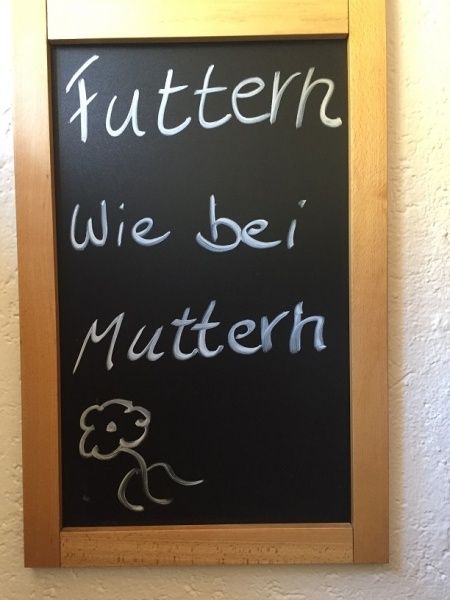 Futtern
Wie bei
Muttern